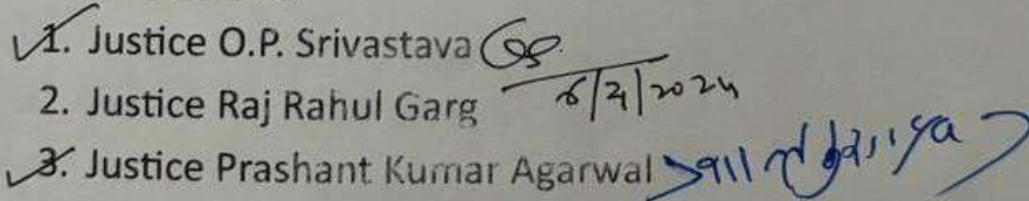 1. Justice O.P. Srivastava
6/2/2024
2. Justice Raj Rahul Garg
3. Justice Prashant Kumar Agarwal